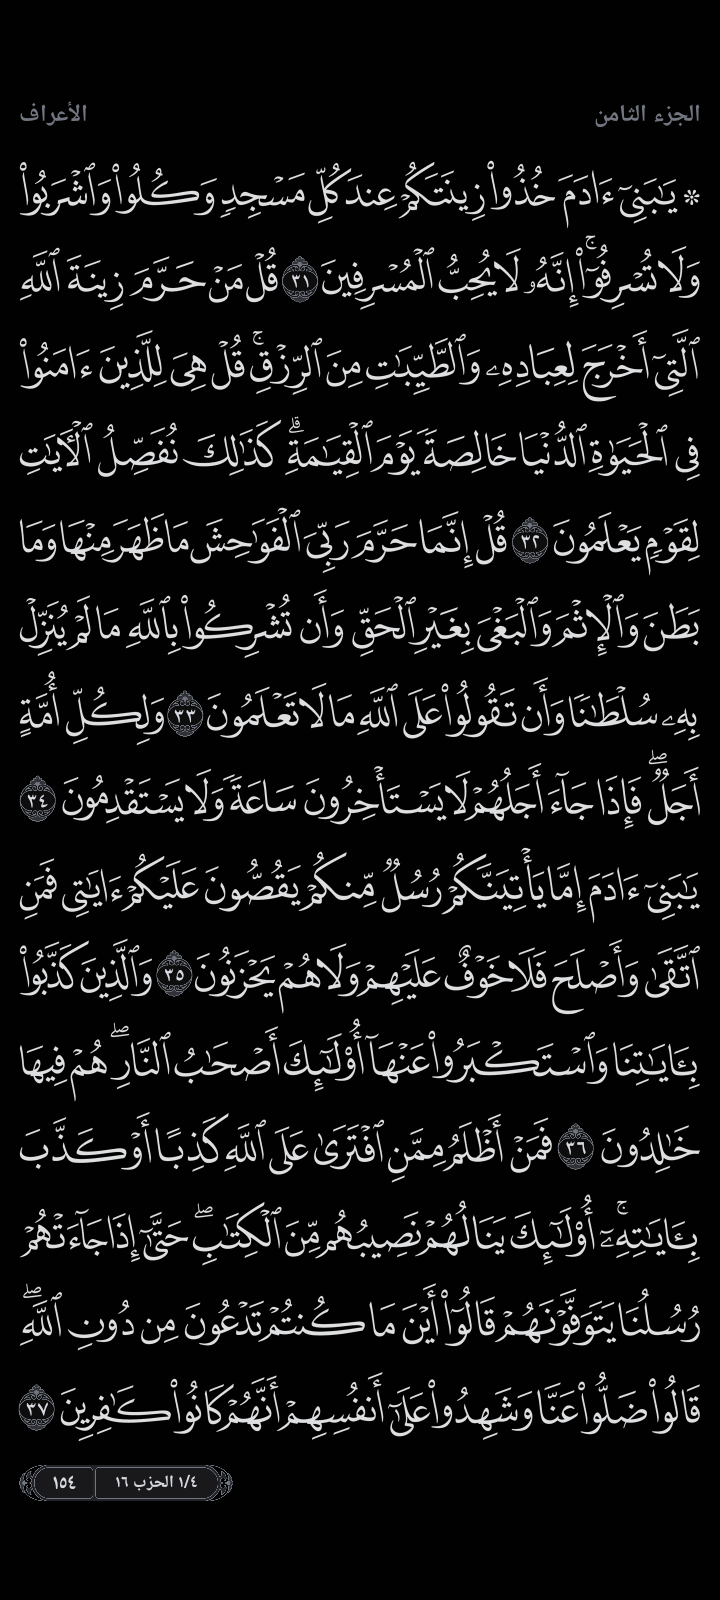 الجزء الثامن
الأعراف
۞ يَٰبَنِيٓ ءَادَمَ خُذُواْ زِينَتَكُمۡ عِندَ كُلِّ مَسۡجِدٖ وَكُلُواْ وَٱشۡرَبُواْ
وَلَا تُسۡرِفُوٓاْۚ إِنَّهُۥ لَا يُحِبُّ ٱلۡمُسۡرِفِينَ ٣١ قُلۡ مَنۡ حَرَّمَ زِينَةَ ٱللَّهِ
ٱلَّتِيٓ أَخۡرَجَ لِعِبَادِهِۦ وَٱلطَّيِّبَٰتِ مِنَ ٱلرِّزۡقِۚ قُلۡ هِيَ لِلَّذِينَ ءَامَنُواْ
فِي ٱلۡحَيَوٰةِ ٱلدُّنۡيَا خَالِصَةٗ يَوۡمَ ٱلۡقِيَٰمَةِۗ كَذَٰلِكَ نُفَصِّلُ ٱلۡأٓيَٰتِ
لِقَوۡمٖ يَعۡلَمُونَ ٣٢ قُلۡ إِنَّمَا حَرَّمَ رَبِّيَ ٱلۡفَوَٰحِشَ مَا ظَهَرَ مِنۡهَا وَمَا
بَطَنَ وَٱلۡإِثۡمَ وَٱلۡبَغۡيَ بِغَيۡرِ ٱلۡحَقِّ وَأَن تُشۡرِكُواْ بِٱللَّهِ مَا لَمۡ يُنَزِّلۡ
بِهِۦ سُلۡطَٰنٗا وَأَن تَقُولُواْ عَلَى ٱللَّهِ مَا لَا تَعۡلَمُونَ ٣٣ وَلِكُلِّ أُمَّةٍ
أَجَلٞۖ فَإِذَا جَآءَ أَجَلُهُمۡ لَا يَسۡتَأۡخِرُونَ سَاعَةٗ وَلَا يَسۡتَقۡدِمُونَ ٣٤
يَٰبَنِيٓ ءَادَمَ إِمَّا يَأۡتِيَنَّكُمۡ رُسُلٞ مِّنكُمۡ يَقُصُّونَ عَلَيۡكُمۡ ءَايَٰتِي فَمَنِ
ٱتَّقَىٰ وَأَصۡلَحَ فَلَا خَوۡفٌ عَلَيۡهِمۡ وَلَا هُمۡ يَحۡزَنُونَ ٣٥ وَٱلَّذِينَ كَذَّبُواْ
بِـَٔايَٰتِنَا وَٱسۡتَكۡبَرُواْ عَنۡهَآ أُوْلَٰٓئِكَ أَصۡحَٰبُ ٱلنَّارِۖ هُمۡ فِيهَا
خَٰلِدُونَ ٣٦ فَمَنۡ أَظۡلَمُ مِمَّنِ ٱفۡتَرَىٰ عَلَى ٱللَّهِ كَذِبًا أَوۡ كَذَّبَ
بِـَٔايَٰتِهِۦٓۚ أُوْلَٰٓئِكَ يَنَالُهُمۡ نَصِيبُهُم مِّنَ ٱلۡكِتَٰبِۖ حَتَّىٰٓ إِذَا جَآءَتۡهُمۡ
رُسُلُنَا يَتَوَفَّوۡنَهُمۡ قَالُوٓاْ أَيۡنَ مَا كُنتُمۡ تَدۡعُونَ مِن دُونِ ٱللَّهِۖ
قَالُواْ ضَلُّواْ عَنَّا وَشَهِدُواْ عَلَىٰٓ أَنفُسِهِمۡ أَنَّهُمۡ كَانُواْ كَٰفِرِينَ ٣٧
١/٤ الحزب ١٦
١٥٤